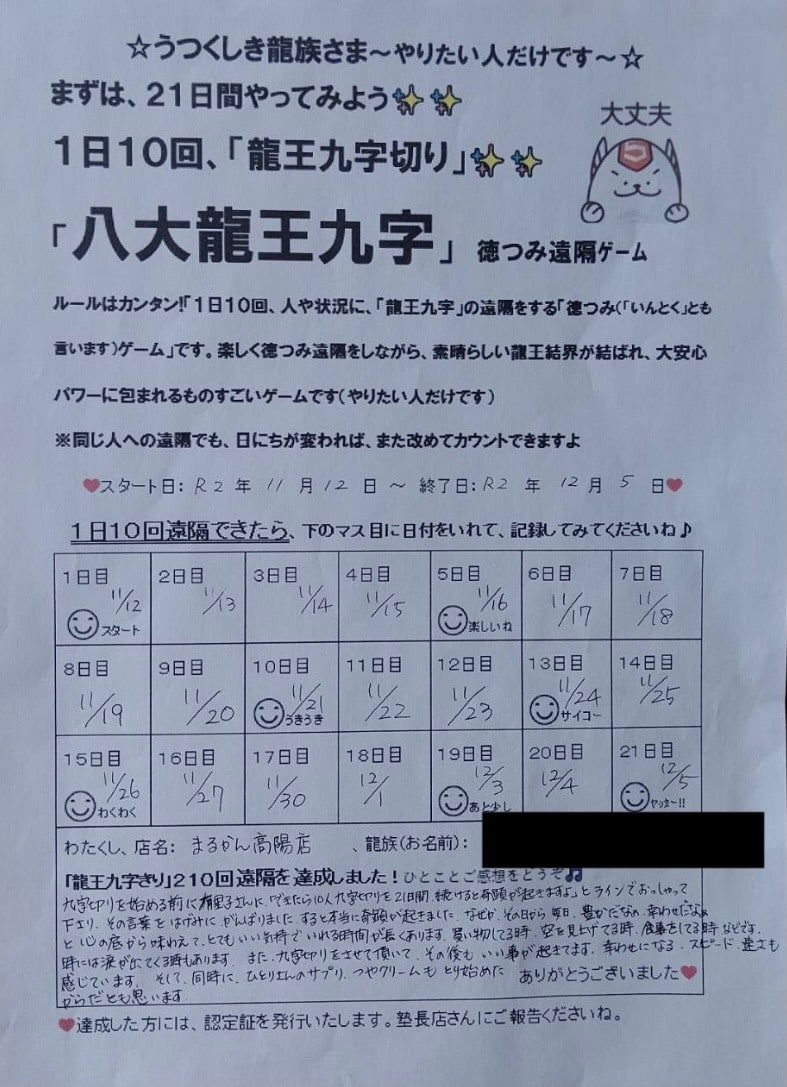 ☆うつくしき龍族さま～やりたい人だけです～☆
まずは、21日間やってみよう✨✨
1日10回、「龍王九字切り」✨✨
大丈夫
「八大龍王九字」 徳つみ遠隔ゲーム
ルールはカンタン!「1日10回、人や状況に、「龍王九字」の遠隔をする「徳つみ(「いんとく」とも
言います)ゲーム」です。楽しく徳つみ遠隔をしながら、素晴らしい龍王結界が結ばれ、大安心
パワーに包まれるものすごいゲームです(やりたい人だけです)
※同じ人への遠隔でも、日にちが変われば、また改めてカウントできますよ
❤スタート日: R2 年 11 月 12 日 ～ 終了日: R2 年 12 月 5 日❤
1日10回遠隔できたら、下のマス目に日付をいれて、記録してみてくださいね♪
1日目 2日目 3日目 4日目 5日目 6日目 7日目
11/12 11/13 11/14 11/15 11/16 11/17 11/18
スタート 楽しいね
8日目 9日目 10日目 11日目 12日目 13日目 14日目
11/19 11/20 11/21 11/22 11/23 11/24 11/25
うきうき サイコー
15日目 16日目 17日目 18日目 19日目 20日目 21日目
11/26 11/27 11/30 12/1 12/3 12/4 12/5
わくわく あと少し ヤッター!!
わたくし、店名: まるかん高陽店 、龍族(お名前):
「龍王九字きり」210回遠隔を達成しました!ひとことご感想をどうぞ🎵
九字切りを始める前に さんに、「できたら10人九字切りを21日間続けると奇蹟が起きますよ」とラインでおっしゃって
下さり、その言葉をはげみにがんばりました。すると本当に奇蹟が起きました。なぜか、その日から毎日、豊かだなぁ、幸わせだなぁ
と心の底から味わえて、とてもいい気持でいれる時間が長くあります。買い物してる時、空を見上げてる時、食事をしてる時などです。
時には涙が出てくる時もあります。また、九字切りをさせて頂いて、その後もいい事が起きてます。幸わせになる、スピード、速さも
感じています。そして、同時に、ひとりさんのサプリ、つやクリームもとり始めた ありがとうございました❤
からだとも思います。
❤達成した方には、認定証を発行いたします。塾長店さんにご報告くださいね。